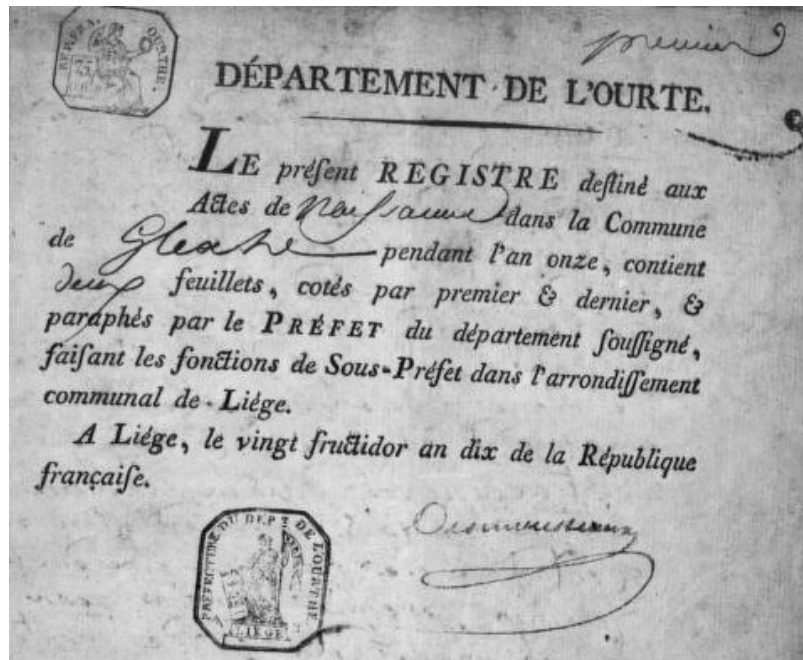 REP. FRA. OURTHE.
premier
DÉPARTEMENT DE L'OURTE.
LE préſent REGISTRE deſtiné aux
Actes de Naiſſance dans la Commune
de Glexhe pendant l'an onze, contient
deux feuillets, cotés par premier & dernier, &
paraphés par le PRÉFET du département ſouſſigné,
faiſant les fonctions de Sous-Préfet dans l'arrondiſſement
communal de Liége.
A Liége, le vingt fructidor an dix de la République
françaiſe.
Desmousseaux
PREFECTURE DU DEP.T DE L'OURTHE
LIEGE